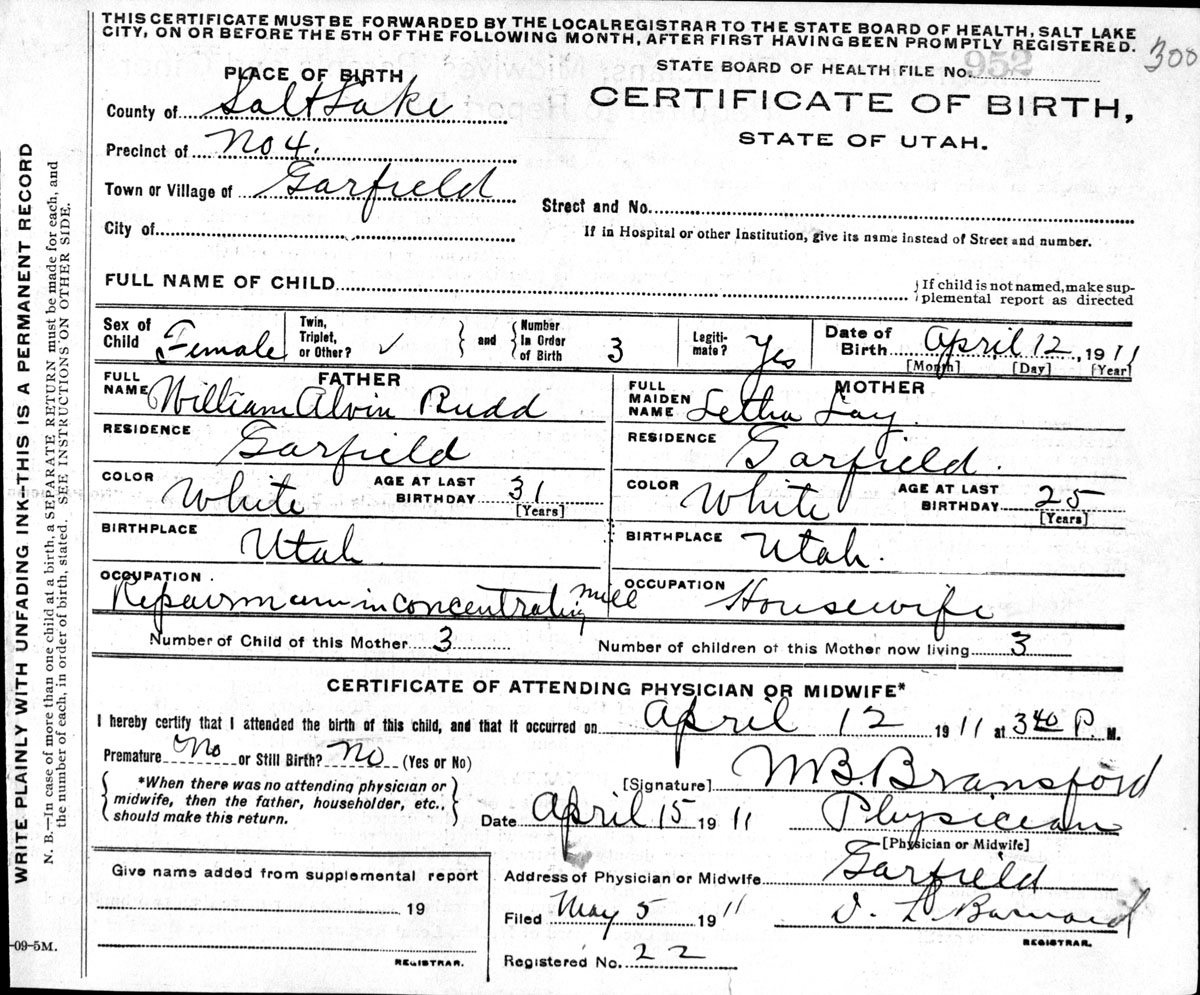 THIS CERTIFICATE MUST BE FORWARDED BY THE LOCAL REGISTRAR TO THE STATE BOARD OF HEALTH, SALT LAKE
CITY, ON OR BEFORE THE 5TH OF THE FOLLOWING MONTH, AFTER FIRST HAVING BEEN PROMPTLY REGISTERED.
300
STATE BOARD OF HEALTH FILE No. 952
PLACE OF BIRTH
CERTIFICATE OF BIRTH,
STATE OF UTAH.
County of Salt Lake
Precinct of No 4.
Town or Village of Garfield
Street and No.
City of
If in Hospital or other Institution, give its name instead of Street and number.
FULL NAME OF CHILD
{If child is not named, make sup-
plemental report as directed
Sex of Child Female Twin, Triplet, or Other? ✓ } and { Number In Order of Birth 3 Legiti-mate? Yes Date of Birth April 12, 1911
[Month] [Day] [Year]
FATHER MOTHER
FULL NAME William Alvin Rudd FULL MAIDEN NAME Letha Lay
RESIDENCE Garfield RESIDENCE Garfield.
COLOR White AGE AT LAST BIRTHDAY 31 [Years] COLOR White AGE AT LAST BIRTHDAY 25 [Years]
BIRTHPLACE Utah BIRTHPLACE Utah.
OCCUPATION Repairman in concentrating mill OCCUPATION Housewife
Number of Child of this Mother 3 Number of children of this Mother now living 3
CERTIFICATE OF ATTENDING PHYSICIAN OR MIDWIFE*
I hereby certify that I attended the birth of this child, and that it occurred on April 12 1911 at 3 40 P M.
Premature No or Still Birth? No (Yes or No)
*When there was no attending physician or
midwife, then the father, householder, etc.,
should make this return.
[Signature] M B Bransford
Date April 15 1911 Physician
[Physician or Midwife]
Address of Physician or Midwife Garfield
Give name added from supplemental report
19
REGISTRAR.
Filed May 5 1911 D. L. Barnard
REGISTRAR.
Registered No. 22
WRITE PLAINLY WITH UNFADING INK—THIS IS A PERMANENT RECORD
N. B.—In case of more than one child at a birth, a SEPARATE RETURN must be made for each, and
the number of each, in order of birth, stated. SEE INSTRUCTIONS ON OTHER SIDE.
-09-5M.